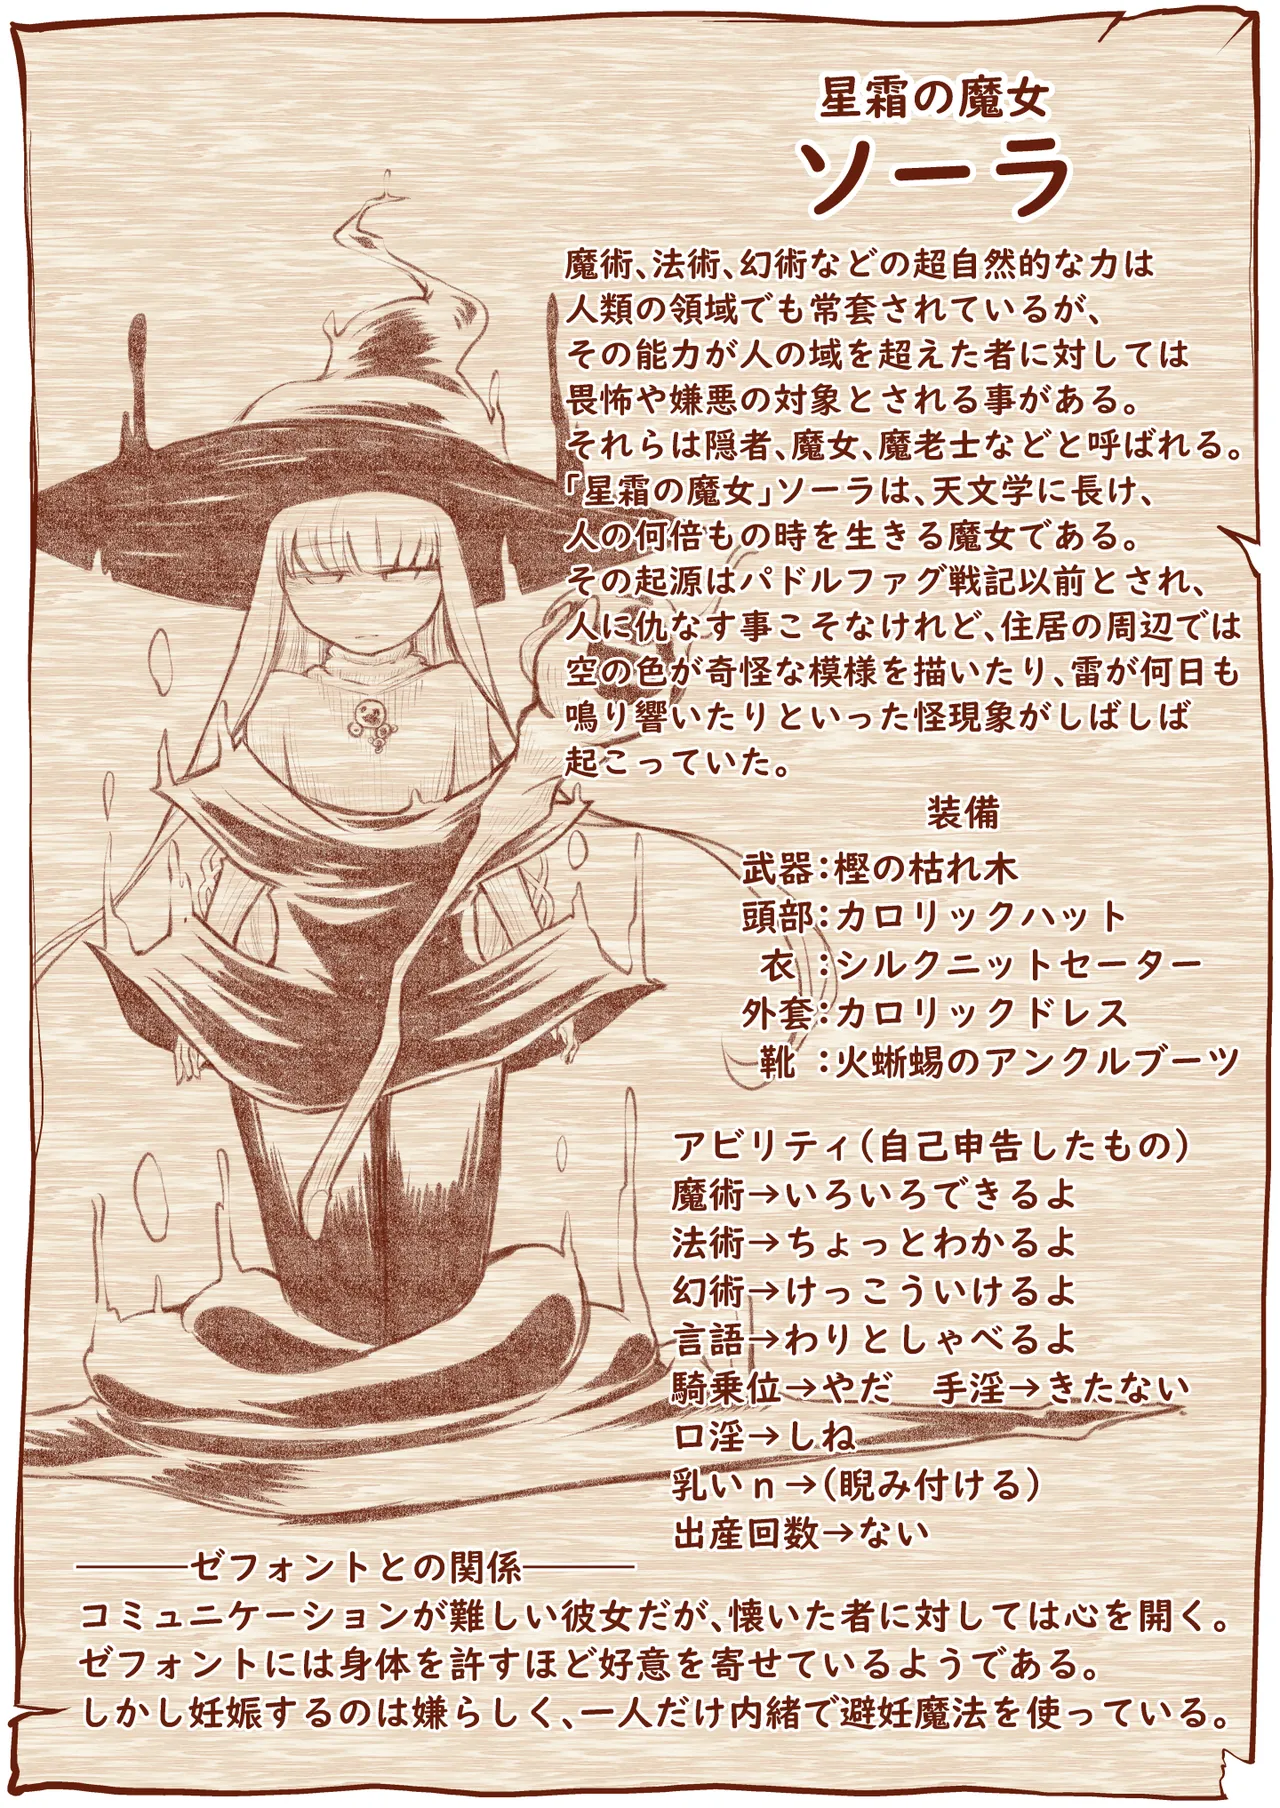 星霜の魔女
ソーラ
魔術、法術、幻術などの超自然的な力は
人類の領域でも常套されているが、
その能力が人の域を超えた者に対しては
畏怖や嫌悪の対象とされる事がある。
それらは隠者、魔女、魔老士などと呼ばれる。
「星霜の魔女」ソーラは、天文学に長け、
人の何倍もの時を生きる魔女である。
その起源はパドルファグ戦記以前とされ、
人に仇なす事こそなけれど、住居の周辺では
空の色が奇怪な模様を描いたり、雷が何日も
鳴り響いたりといった怪現象がしばしば
起こっていた。
装備
武器：樫の枯れ木
頭部：カロリックハット
衣 ：シルクニットセーター
外套：カロリックドレス
靴 ：火蜥蜴のアンクルブーツ
アビリティ（自己申告したもの）
魔術→いろいろできるよ
法術→ちょっとわかるよ
幻術→けっこういけるよ
言語→わりとしゃべるよ
騎乗位→やだ　手淫→きたない
口淫→しね
乳いｎ→（睨み付ける）
出産回数→ない
────ゼフォントとの関係────
コミュニケーションが難しい彼女だが、懐いた者に対しては心を開く。
ゼフォントには身体を許すほど好意を寄せているようである。
しかし妊娠するのは嫌らしく、一人だけ内緒で避妊魔法を使っている。